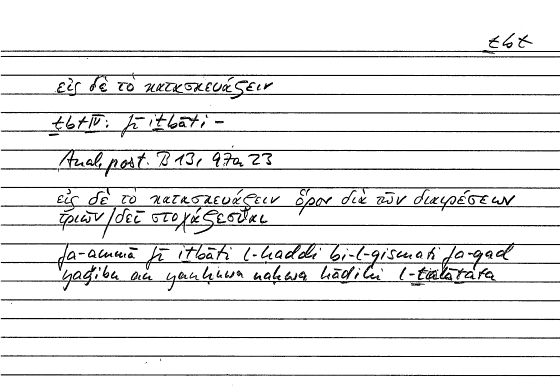 ṯbt
εἰς δὲ τὸ κατασκευάζειν
ṯbt IV: fī iṯbāti –
Anal. post. B 13, 97a 23
εἰς δὲ τὸ κατασκευάζειν ὅρον διὰ τῶν διαιρέσεων
τριῶν / δεῖ στοχάζεσθαι
fa-ammā fī iṯbāti l-ḥaddi bi-l-qismati fa-qad
yaǧibu an yanḥuwa naḥwa hāḏihi l-ṯalāṯata